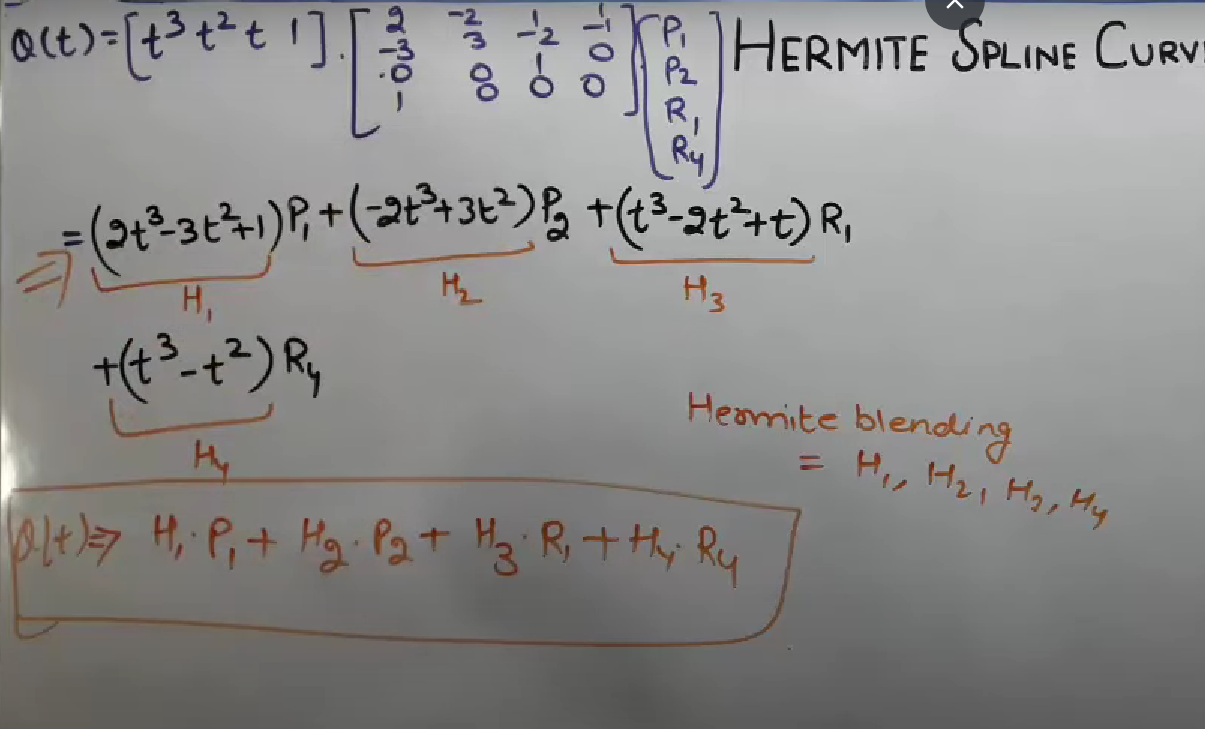 Q(t)=[t³ t² t 1].[2 -2 1 1
-3 3 -2 -1
0 0 1 0
1 0 0 0]
[P₁
P₂
R₁
R₄]
HERMITE SPLINE CURV
=(2t³-3t²+1)P₁+(-2t³+3t²)P₂+(t³-2t²+t)R₁
H₁ H₂ H₃
+(t³-t²)R₄
H₄
Hermite blending
= H₁, H₂, H₃, H₄
Q(t)⇒ H₁·P₁+H₂·P₂+H₃·R₁+H₄·R₄